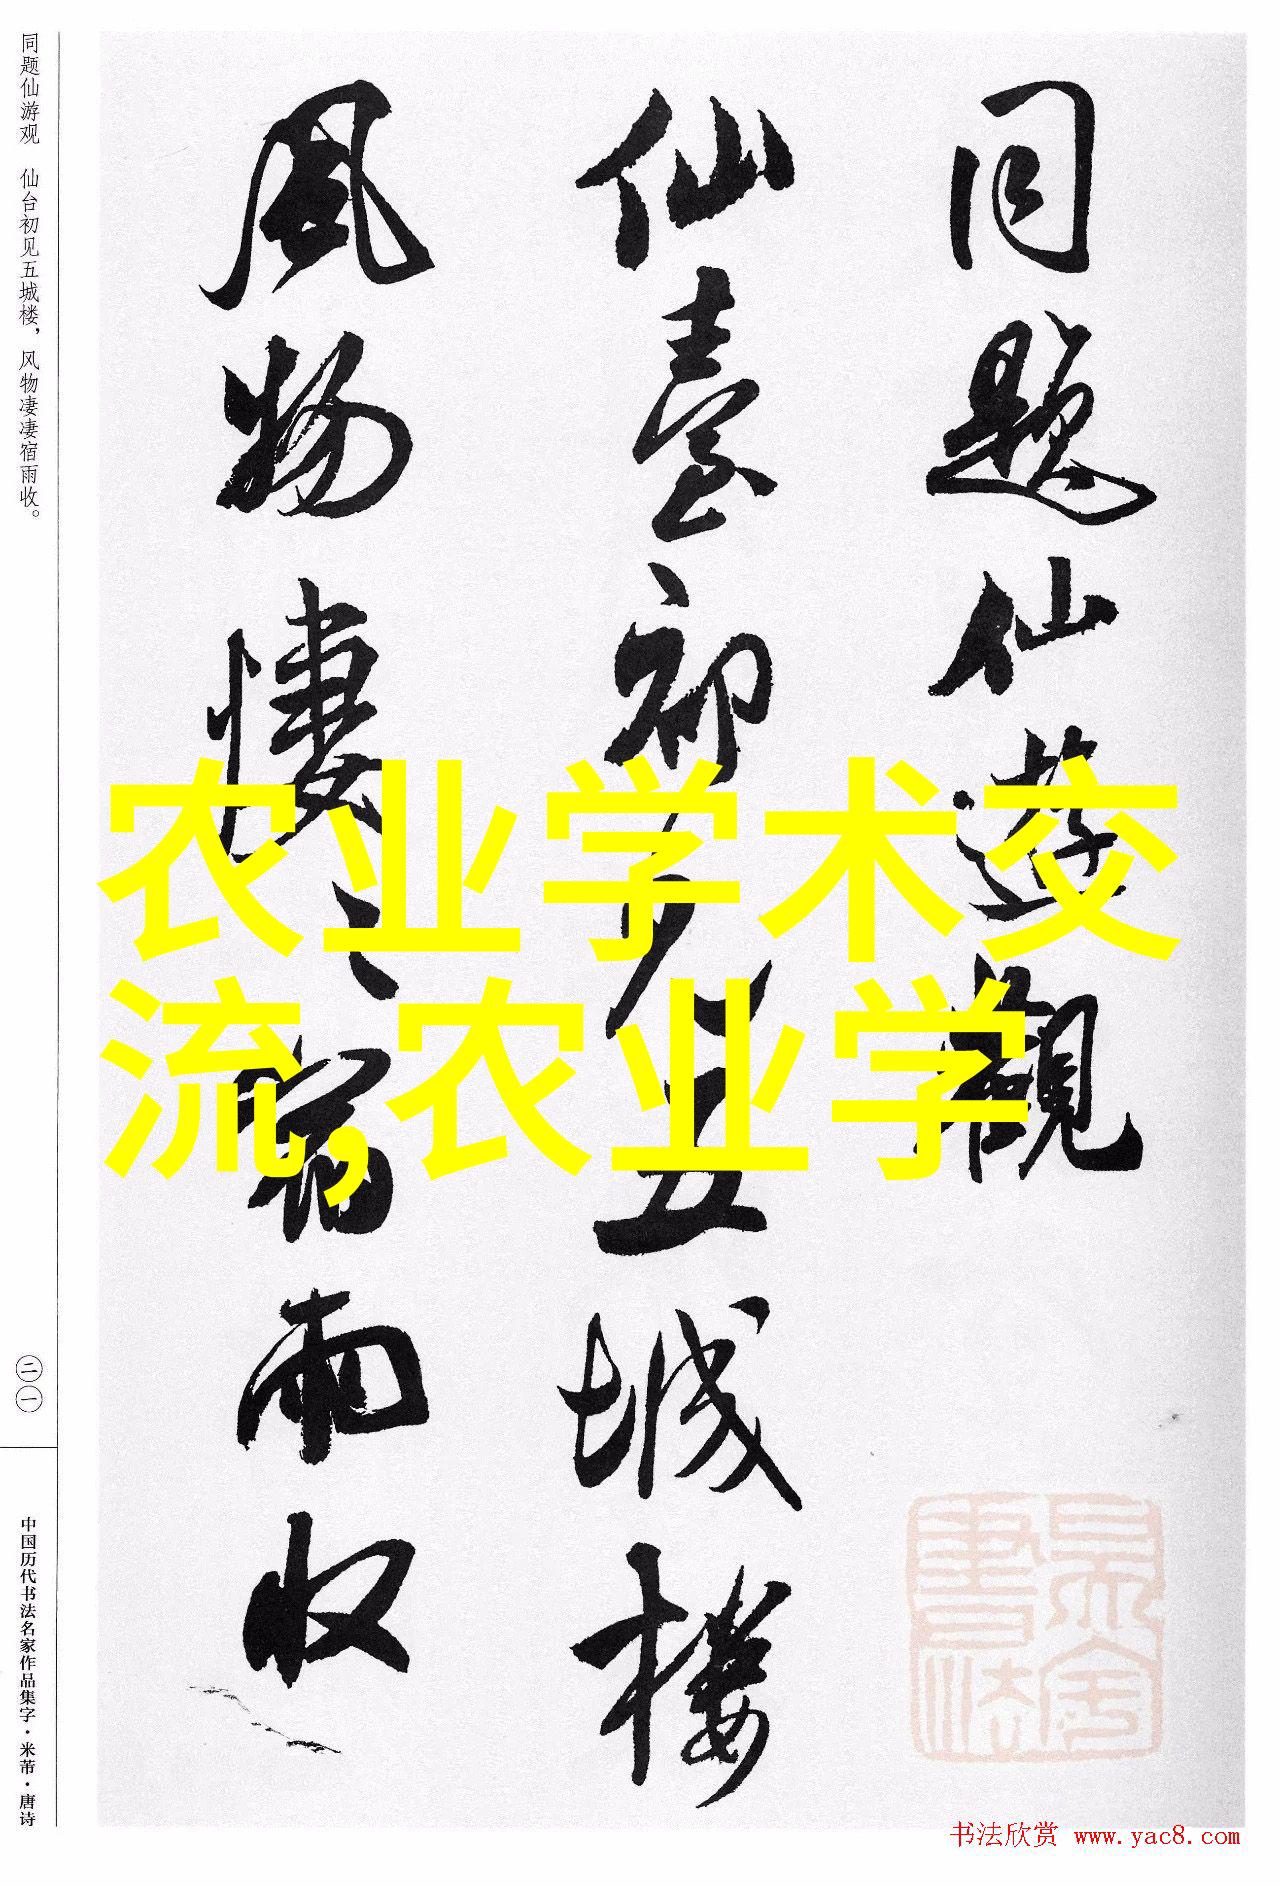 同题仙游观　仙台初见五城楼，风物凄凄宿雨收。
同題仙遊觀
仙臺初見五城樓
風物悽〻宿雨收
农业学术交
流,农业学
二一
中国历代书法名家作品集字·米芾·唐诗
书法欣赏 www.yac8.com